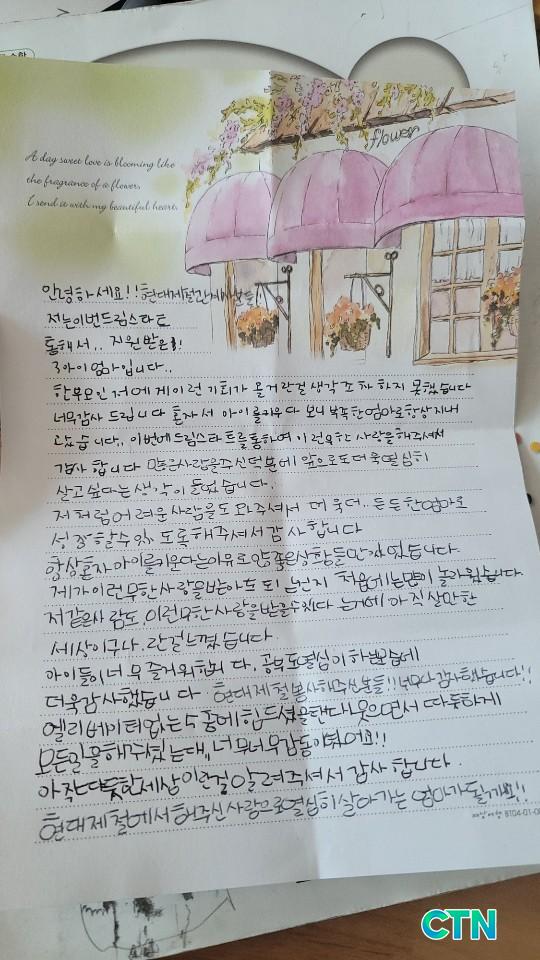 flower
A day sweet love is blooming like
the fragrance of a flower.
I send it with my beautiful heart.
안녕하세요!! 현대제철
저는이번드림스타트
통해서.. 지원받은
3아이 엄마입니다..
한부모인 저에게 이런 기회가 올거란걸 생각조차 하지 못했습니다
너무감사 드립니다 혼자서 아이를키우다 보니 부족한엄마로항상지내
이번에드림스타트를통하여 이런 사랑을해주셔서
감사합니다 사랑을주신덕분에 앞으로도더욱열심히
살고싶다는생각이들었습니다.
저처럼어려운사람을도와주셔서 더욱더.. 든든한엄마로
성장할수있도록해주셔서감사합니다
항상혼자아이를키운다는이유로안좋은상황들만
제가이런무한사랑을받아도 되는건지 처음에는많이 놀라웠습니다
저같은사람도 이런무한사랑을받을수있다는거에 아직살만한
세상이구나.란걸느꼈습니다
아이들이너무즐거워합니다. 공부도열심이하
더욱감사했습니다 현대제철봉사해주신분들!! 너무나감사했습니다!!
엘리베이터없는 힘드셨을텐데웃으면서따듯하게
모든일을해주셨는데,, 너무너무감동이였어요!!
아직따뜻한세상이란걸알려주셔서감사합니다.
현대제철에서해주신사랑으로열심히살아가는 엄마가될게요!!
CTN